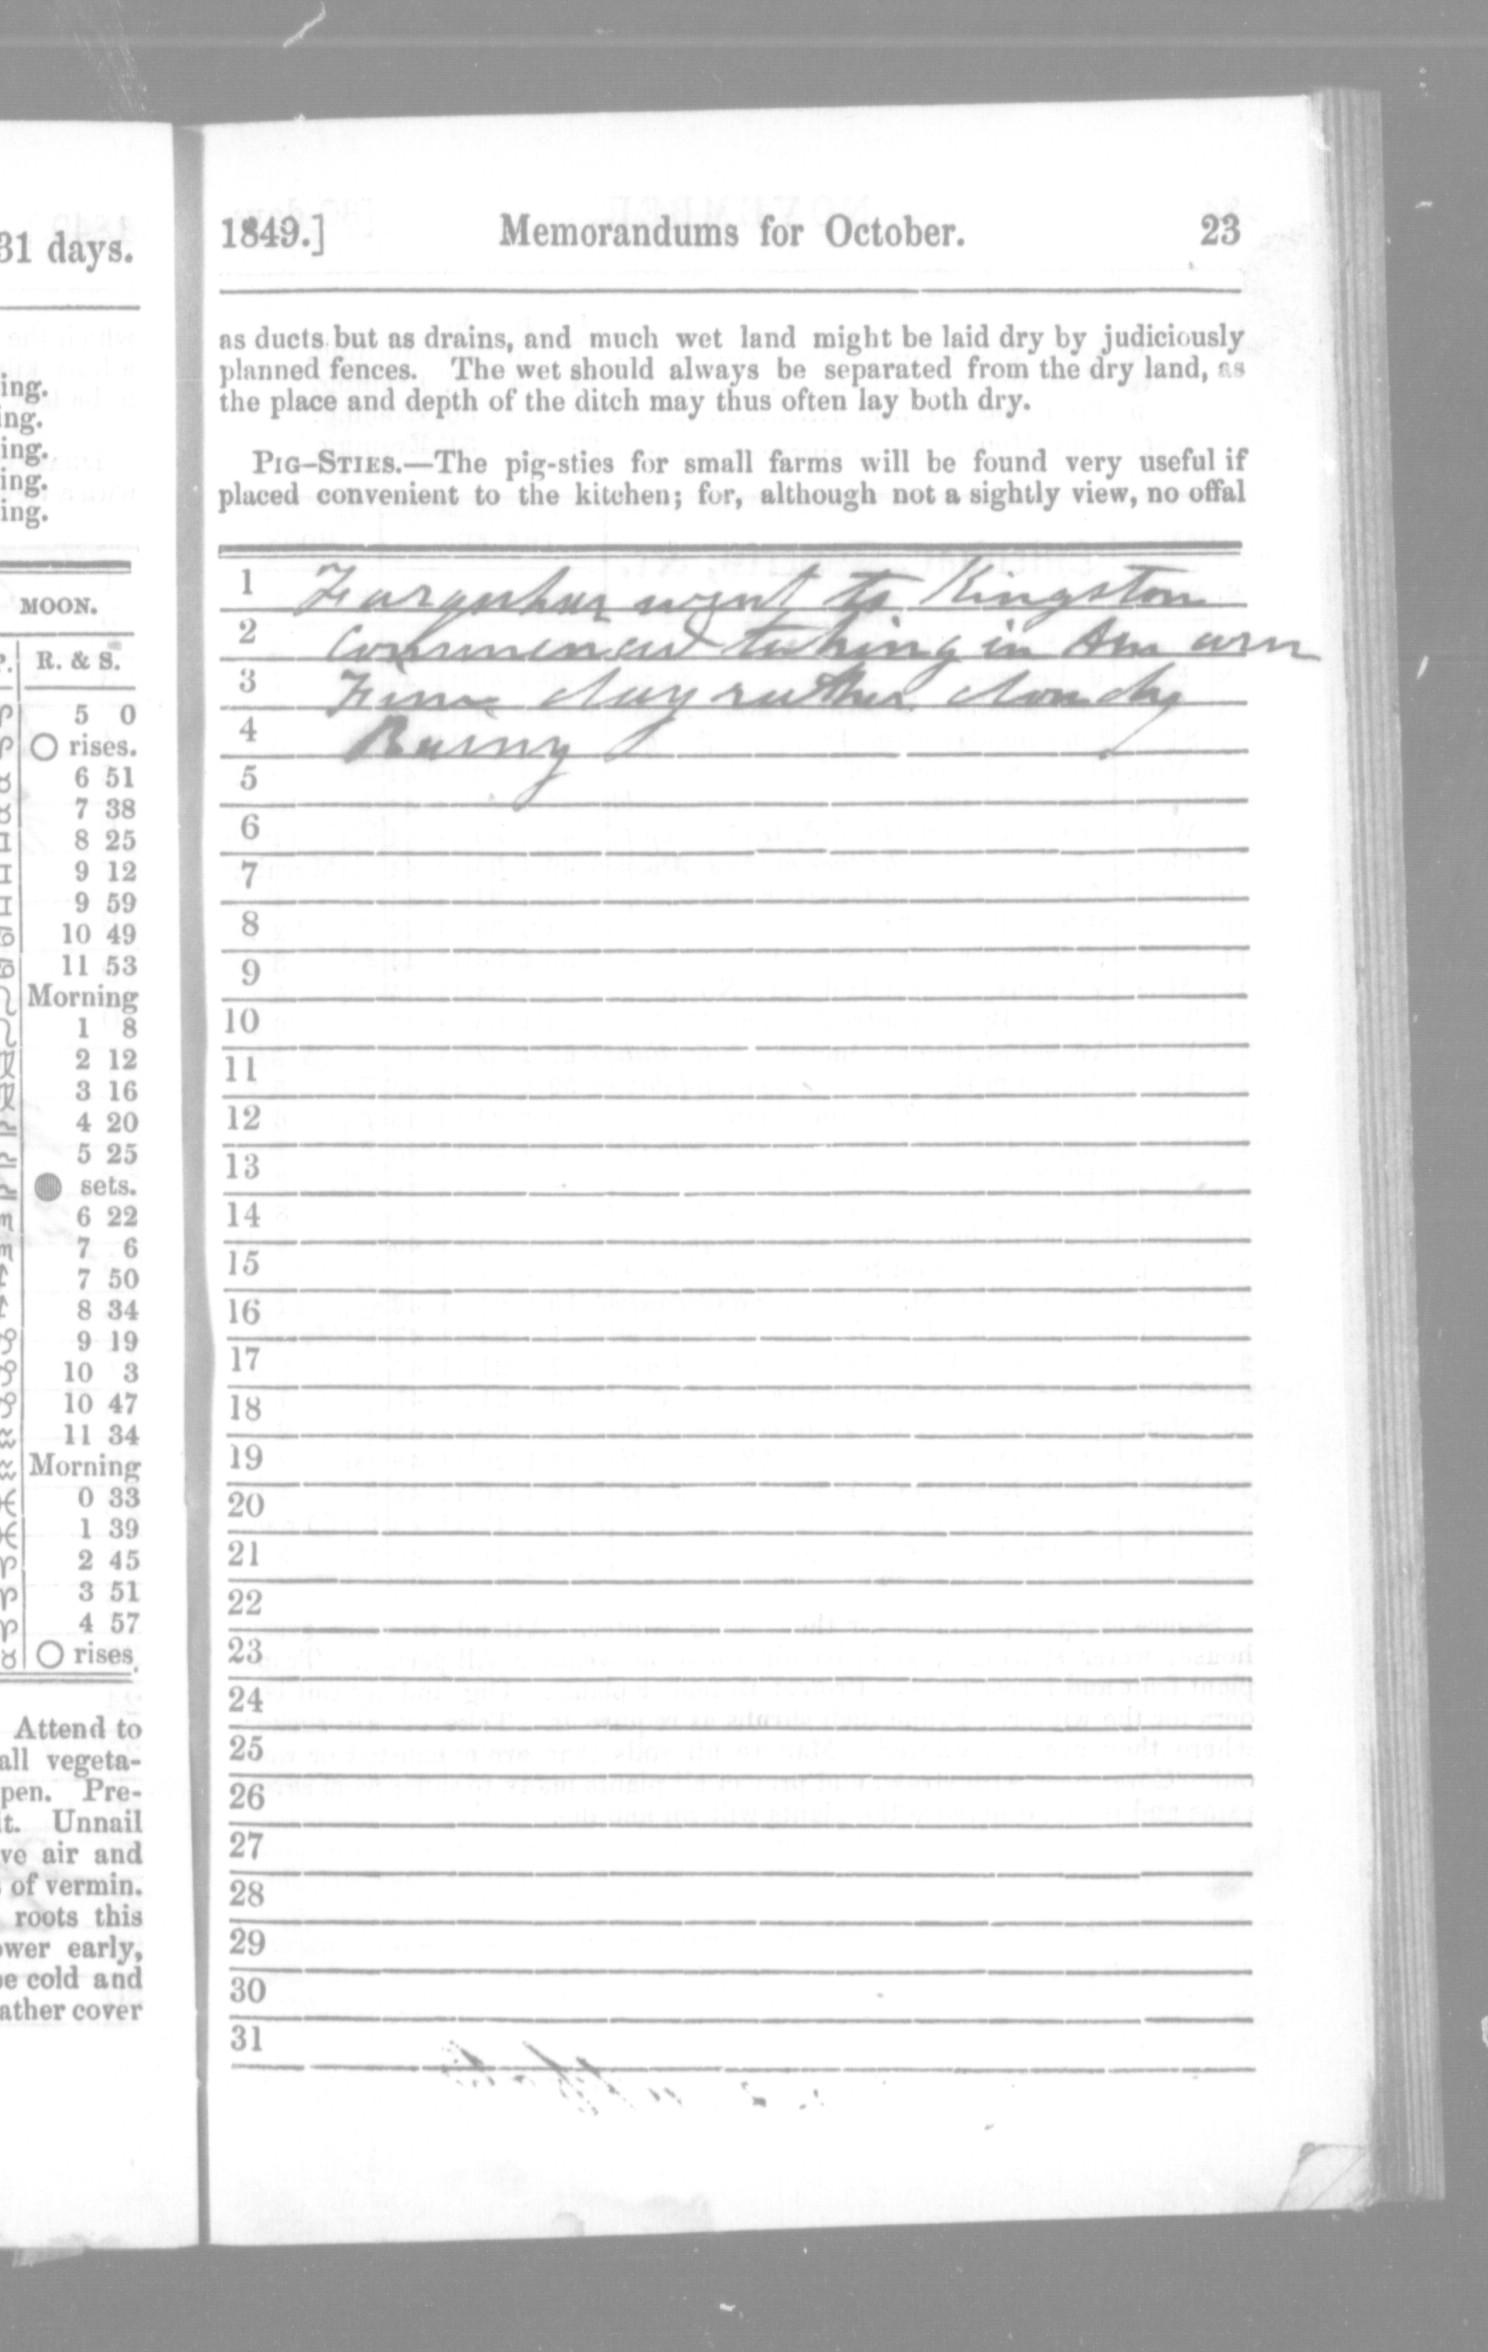 31 days.
ing.
ing.
ing.
ing.
ing.
MOON.
R. & S.
5 0
rises.
6 51
7 38
8 25
9 12
9 59
10 49
11 53
Morning
1 8
2 12
3 16
4 20
5 25
sets.
6 22
7 6
7 50
8 34
9 19
10 3
10 47
11 34
Morning
0 33
1 39
2 45
3 51
4 57
rises.
Attend to
all vegeta-
pen. Pre-
it. Unnail
ve air and
of vermin.
roots this
ower early,
be cold and
ather cover
1849.] Memorandums for October. 23
as ducts but as drains, and much wet land might be laid dry by judiciously
planned fences. The wet should always be separated from the dry land, as
the place and depth of the ditch may thus often lay both dry.
PIG-STIES.—The pig-sties for small farms will be found very useful if
placed convenient to the kitchen; for, although not a sightly view, no offal
1 Farquhar went to Kingston
2 Commenced taking in
3 Fine day rather cloudy
4 Rainy
5
6
7
8
9
10
11
12
13
14
15
16
17
18
19
20
21
22
23
24
25
26
27
28
29
30
31